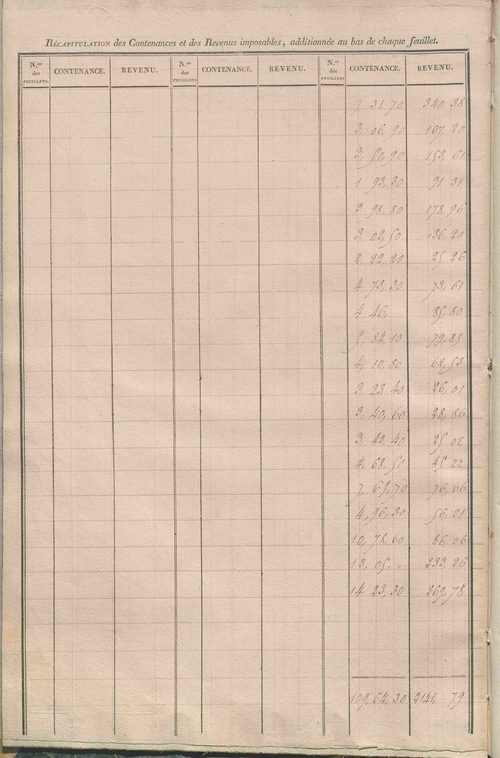 RÉCAPITULATION des Contenances et des Revenus imposables, additionnée au bas de chaque feuillet.
N.os des FEUILLETS CONTENANCE. REVENU. N.os des FEUILLETS CONTENANCE. REVENU. N.os des FEUILLETS CONTENANCE. REVENU.
7 31, 70 340, 38
3, 06, 90 167, 20
2, 52, 90 153, 61
1 93, 20 91 31
2 98, 80 178, 96
3, 02, 50 36, 20
2, 22, 20 25 26
4 73, 30 73, 61
4 46, 85, 80
5, 84, 10 79, 85
4, 10, 80 62, 53
3, 23, 40 26, 01
3, 40, 60 28, 86
3, 42, 40 25 02
4, 68, 50 45, 22
7, 65, 70 76, 66
4, 96, 30 56, 21
10, 78, 60 86, 06
13, 05, " 233, 26
14 23, 30 269, 78
109, 64, 30 2141, 79